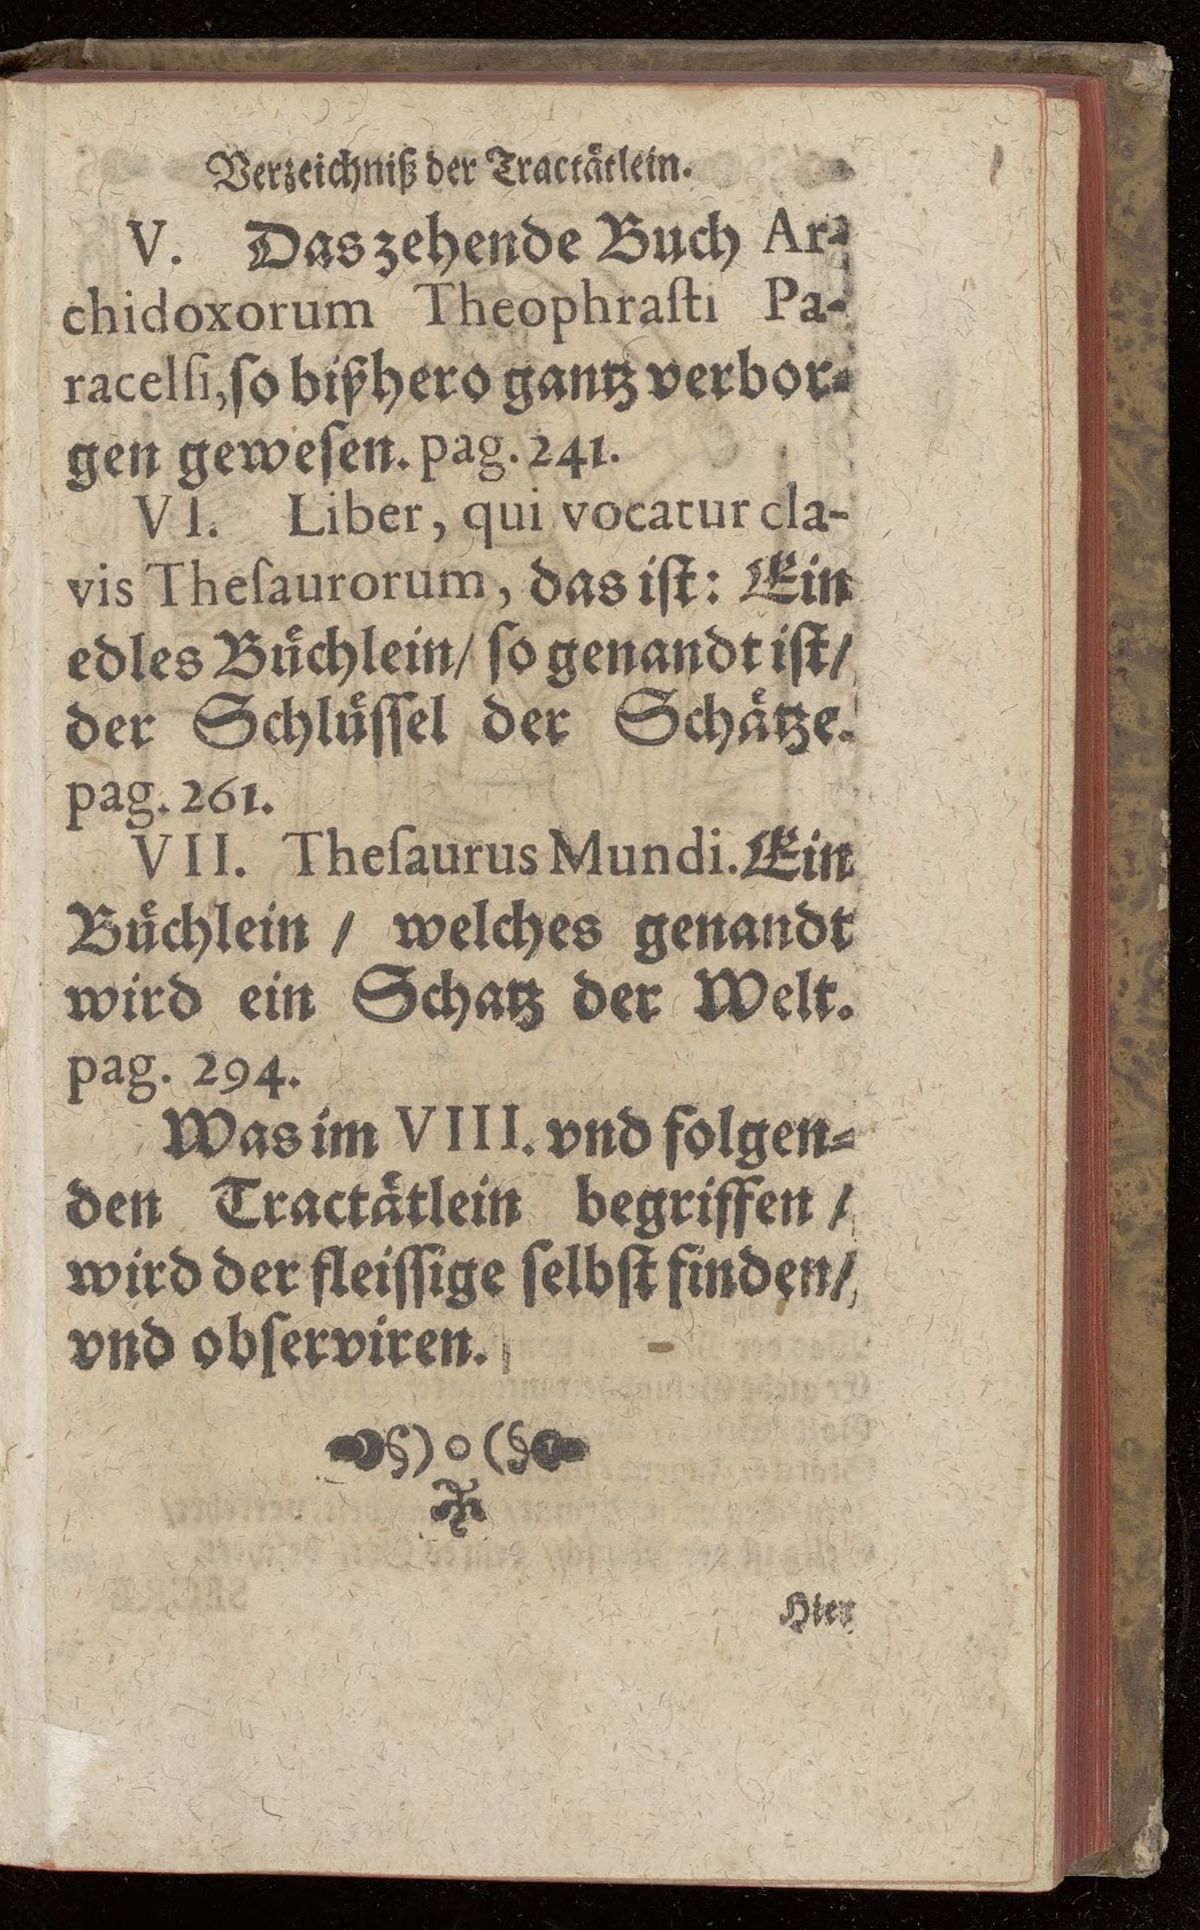 Verzeichniß der Tractaͤtlein.
V. Das zehende Buch Ar-
chidoxorum Theophraſti Pa-
racelſi, ſo bißhero gantz verbor-
gen geweſen. pag. 241.
VI. Liber, qui vocatur cla-
vis Theſaurorum, das iſt: Ein
edles Buͤchlein/ ſo genandt iſt/
der Schluͤſſel der Schaͤtze.
pag. 261.
VII. Theſaurus Mundi. Ein
Buͤchlein / welches genandt
wird ein Schatz der Welt.
pag. 294.
Was im VIII. vnd folgen-
den Tractaͤtlein begriffen /
wird der fleiſſige ſelbſt finden/
vnd obſerviren.
§) o (§
Hier